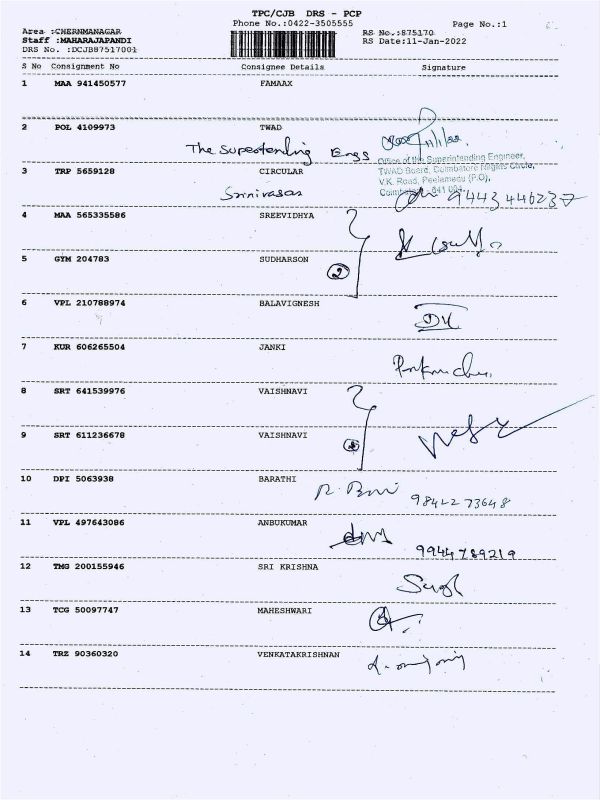 TPC/CJB DRS - PCP
Phone No.:0422-3505555
Page No.:1
Area :CHERNMANAGAR
RS No.:875170
Staff :MAHARAJAPANDI
RS Date:11-Jan-2022
DRS No. :DCJB87517001
S No Consignment No Consignee Details Signature
1 MAA 941450577 FAMAAX
2 POL 4109973 TWAD
The Superintending Engg
Office of the Superintending Engineer,
3 TRP 5659128 CIRCULAR
TWAD Board, Coimbatore Region Circle,
V.K. Road, Peelamedu (P.O),
Srinivasan
Coimbatore - 641 004.
9443446237
4 MAA 565335586 SREEVIDHYA
5 GYM 204783 SUDHARSON
2
6 VPL 210788974 BALAVIGNESH
7 KUR 606265504 JANKI
8 SRT 641539976 VAISHNAVI
9 SRT 611236678 VAISHNAVI
10 DPI 5063938 BARATHI
98422 73648
11 VPL 497643086 ANBUKUMAR
9944789219
12 TMG 200155946 SRI KRISHNA
13 TCG 50097747 MAHESHWARI
14 TRZ 90360320 VENKATAKRISHNAN